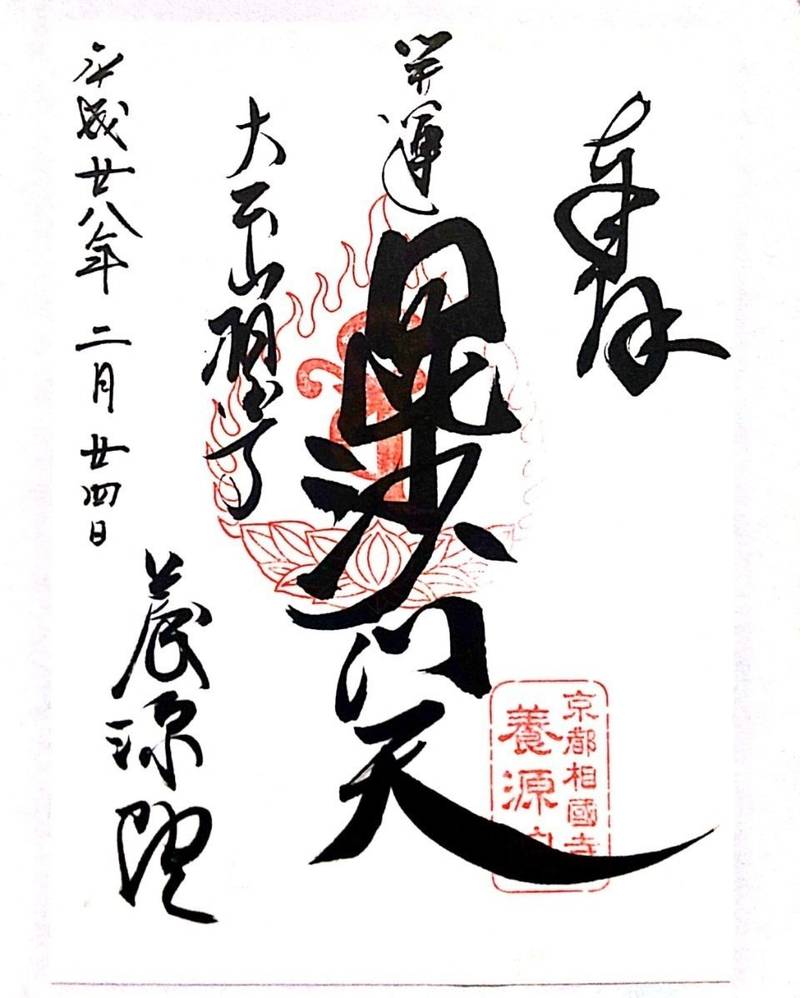 奉拝
開運
毘沙門天
大本山相国寺
平成廿八年二月廿四日
養源院
京都相國寺
養源